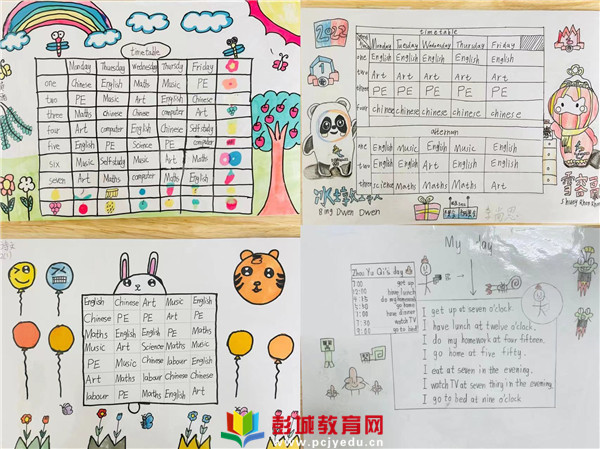 timetable
Monday Thursday Wednesday Thursday Friday
one Chinese English Maths Music PE
two PE Music Art English Chinese
three Maths Chinese Chinese computer Art
four Art computer English Chinese Self study
five English PE Science PE computer
six Music Self study Music Art Maths
seven Art Maths computer Maths English
2022
timetable
Monday Tuesday Wednesday Thursday Friday
one English English English English English
two Art Art Art Art Art
three PE PE PE PE PE
four chinese chinese chinese chinese chinese
afternun
one English Music English Music English
two English English Art English English
three science Maths Maths Maths Art
Bing Dwen Dwen
雪容融
English Chinese Art Music English
Chinese PE PE Art PE
Maths English English PE Maths
Music Art Science Maths Music
PE Music Chinese labour English
Art Maths labour Chinese Chinese
labour PE Maths English Art
My day
Zhao Yu Qi's day
7:00 get up
12:00 have lunch
4:15 do my homework
go home
have dinner
watch TV
9:00 go to bed
I get up at seven o'clock.
I have lunch at twelve o'clock.
I do my homework at four fifteen.
I go home at five fifty.
I eat at seven in the evening.
I watch TV at seven thiry in the evening.
I go to bed at nine o'clock
彭城教育网
www.pcjyedu.cn